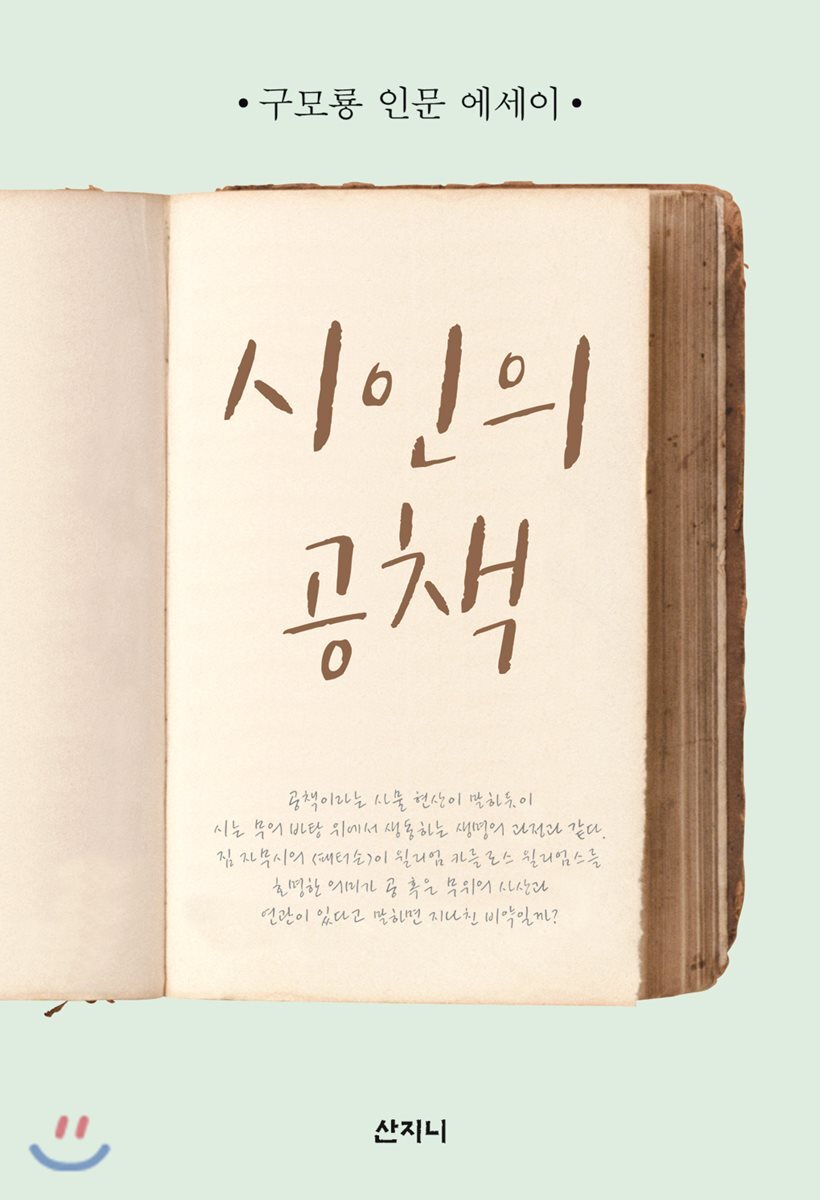 • 구모룡 인문 에세이 •
시인의
공책
공책이라는 사물 현상이 말하듯이
시는 무의 바탕 위에서 생동하는 생명의 과정과 같다.
짐 자무시의 <패터슨>이 윌리엄 카를로스 윌리엄스를
호명한 의미가 공 혹은 무위의 사상과
연관이 있다고 말하면 지나친 비약일까?
산지니